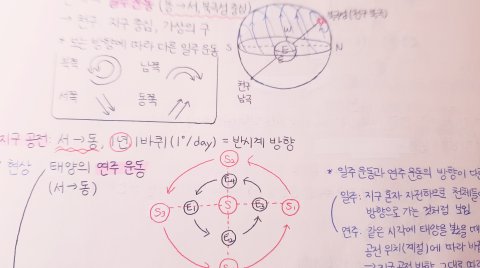 일주 운동 (동→서, 북극성 중심)
→ 천구: 지구 중심, 가상의 구
* 보는 방향에 따라 다른 일주 운동
북쪽
남쪽
서쪽
동쪽
북극성 (천구 북극)
W
S
E
N
천구
남극
지구 공전: 서→동, 1년 1바퀴 (1°/day) = 반시계 방향
현상
태양의 연주 운동
(서→동)
S2
E4
S3
E1
S
E3
S1
E2
* 일주 운동과 연주 운동의 방향이
일주: 지구 혼자 자전하므로 천체들이
방향으로 가는 것처럼 보임
연주: 같은 시각에 태양을 봤을 때
공전 위치(계절)에 따라
→ 지구 공전 방향 그대로